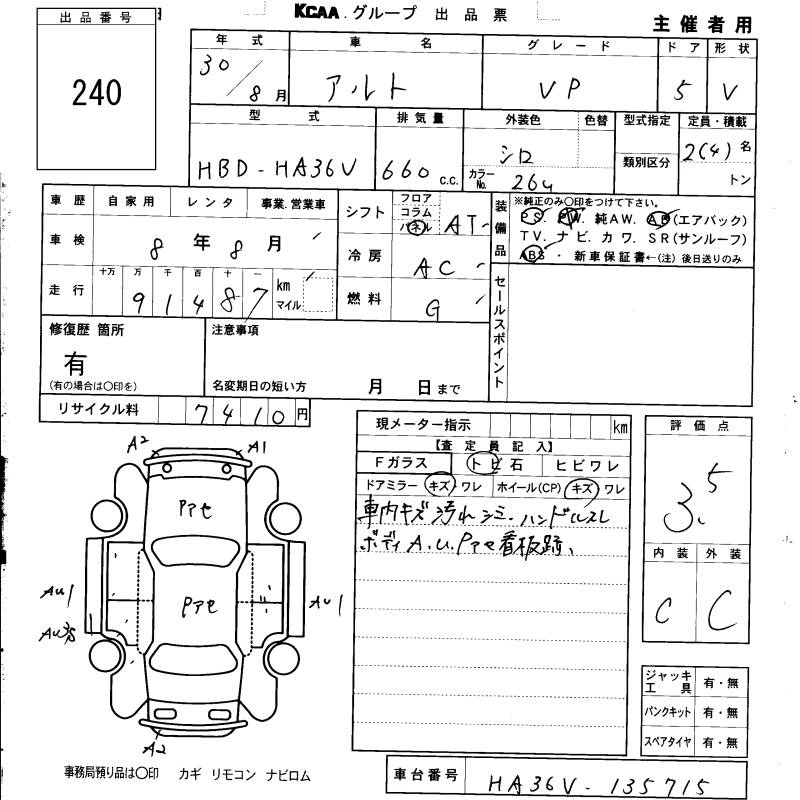 出品番号
240
KCAA.グループ 出品票
主催者用
年式 車名 グレード ドア 形状
30/8月 アルト VP 5 V
型式 排気量 外装色 色替 型式指定 定員・積載
HBD-HA36V 660 c.c. シロ 類別区分 2(4)名
カラーNo. 26U トン
車歴 自家用 レンタ 事業.営業車
車検 8年8月
走行 十万 万 千 百 十 一
91487 km マイル
シフト フロア コラム パネル AT
冷房 AC
燃料 G
装備品 ※純正のみ〇印をつけて下さい。
PS. PW. 純AW. AB(エアバック)
TV. ナビ. カワ. SR(サンルーフ)
ABS ・ 新車保証書←(注)後日送りのみ
セールスポイント
修復歴 箇所
有
(有の場合は〇印を)
注意事項
名変期日の短い方 月 日まで
リサイクル料 7410円
現メーター指示 km
【査定員記入】
Fガラス トビ石 ヒビワレ
ドアミラー キズ・ワレ ホイール(CP) キズ・ワレ
車内キズ汚れシミ. ハンドルスレ
ボディA.U.Pアセ看板跡、
評価点
3.5
内装 外装
C C
A2 A1
Pアセ
Pアセ
AU1 AU1
A2
ジャッキ工具 有・無
パンクキット 有・無
スペアタイヤ 有・無
事務局預り品は〇印 カギ リモコン ナビロム
車台番号 HA36V-135715